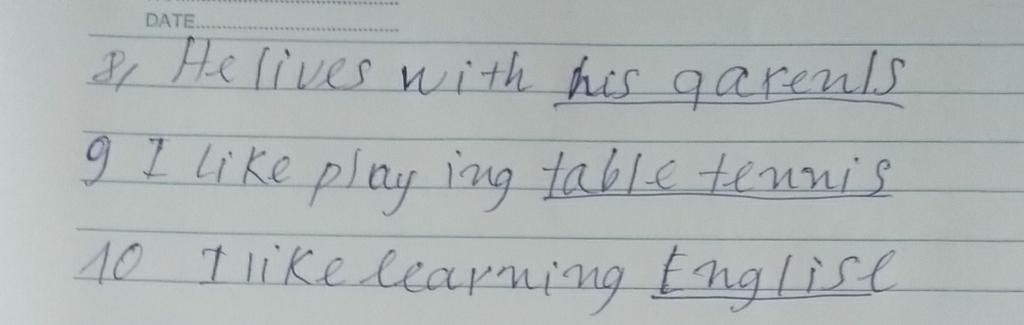 DATE
8, He lives with his qarents
9 I like playing table tennis
10 I like learning Englise